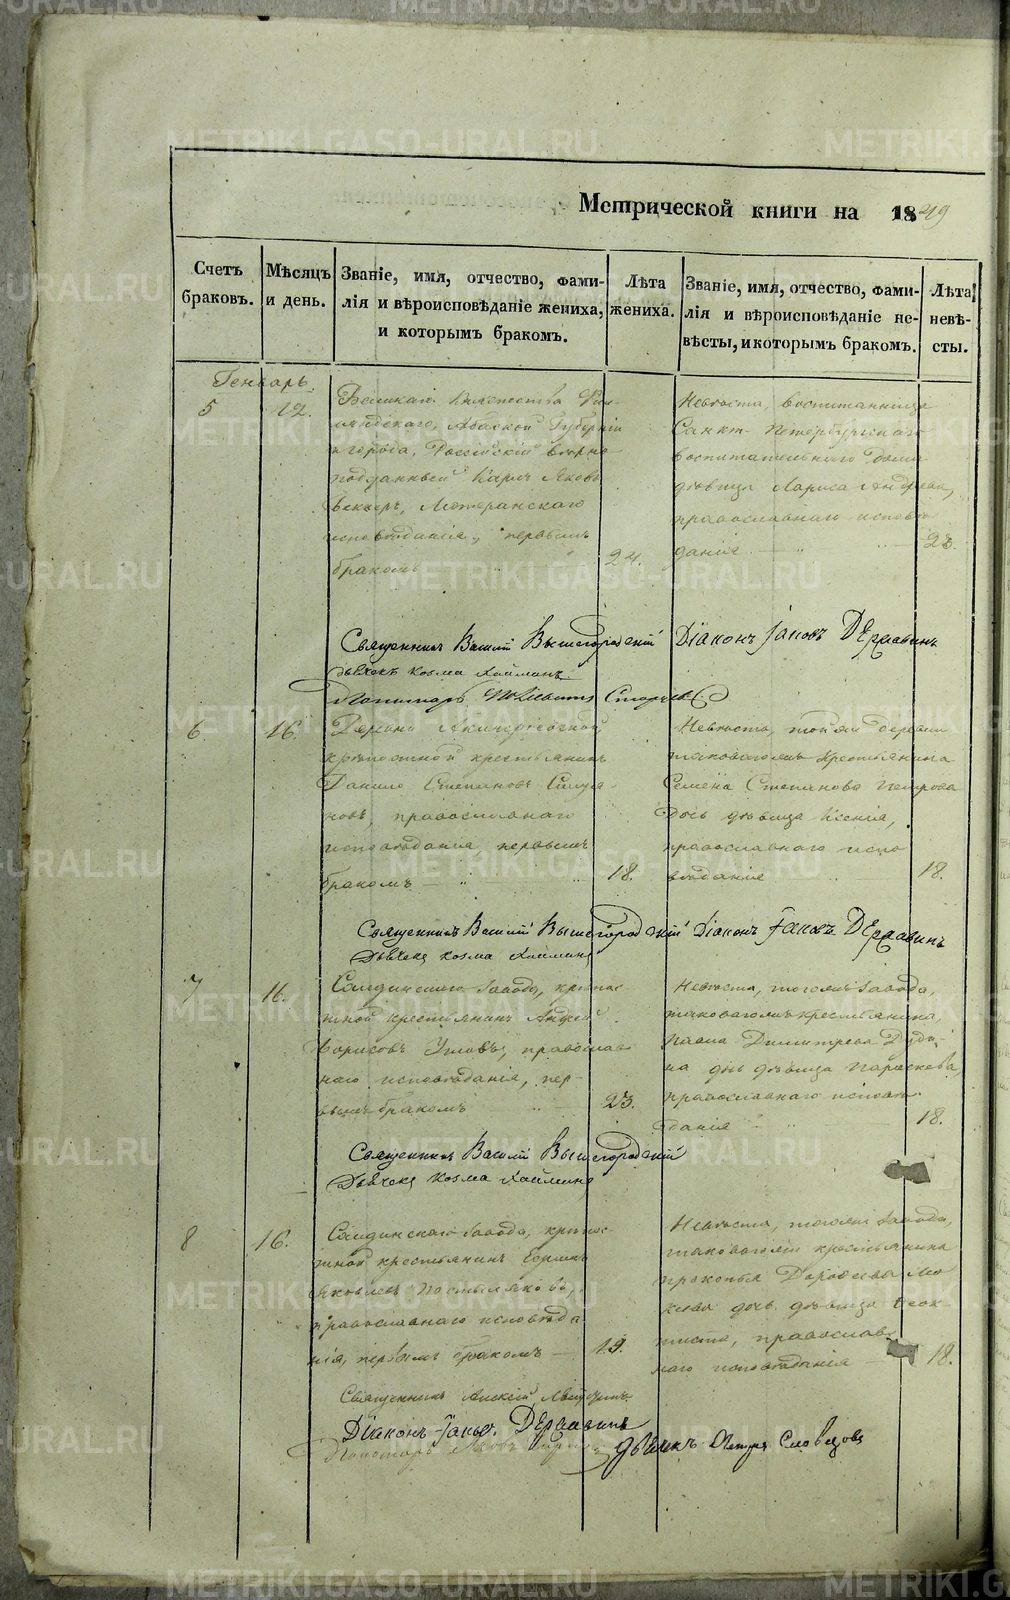 Метрической книги на 1849
Счетъ браковъ.
Мѣсяцъ и день.
Званіе, имя, отчество, фами-
лія и вѣроисповѣданіе жениха,
и которымъ бракомъ.
Лѣта жениха.
Званіе, имя, отчество, фами-
лія и вѣроисповѣданіе не-
вѣсты, и которымъ бракомъ.
Лѣта невѣ-
сты.
Генварь.
5
12.
Великаго Княжества Фин-
ляндскаго, Абаской Губерніи
города, Россійскій вѣрно-
подданный Карлъ Яковъ
Лютеранскаго
исповѣданія, первымъ
бракомъ
24.
Невѣста, воспитанница
Санкт-Петербургскаго
воспитательнаго Дома
дѣвица Лариса Андреева,
православнаго исповѣ
данія
23.
Священникъ Василій Вышегородскій Діаконъ Іаковъ Державинъ
Дьячекъ Козма Хайминъ
Пономарь
6.
16.
крѣпостной крестьянинъ
Данило Степановъ
новъ, православнаго
исповѣданія, первымъ
бракомъ
18.
Невѣста, той же деревни
таковагожъ крестьянина
Семена Степанова Петрова
дочь дѣвица Ксенія,
православнаго испо
вѣданія
18.
Священникъ Василій Вышегородскій Діаконъ Іаковъ Державинъ
Дьячекъ Козма Хайминъ
7
16.
Салдинскаго завода, крѣпос
тной крестьянинъ Андрей
Борисовъ Угловъ, православ
наго исповѣданія, пер-
вымъ бракомъ
23.
Невѣста, тогожъ завода,
таковагожъ крестьянина,
Павла Димитріева
дочь дѣвица Параскева,
православнаго исповѣ
данія
18.
Священникъ Василій Вышегородскій
Дьячекъ Козма Хайминъ
8
16.
Салдинскаго завода, крѣпос-
тной крестьянинъ
Яковлевъ Постыляковъ,
православнаго исповѣда
нія, первымъ бракомъ
19.
Невѣста, тогожъ завода,
таковагожъ крестьянина
Прокопья Дорофеева Мо
кѣева дочь дѣвица Феок-
тиста, православ
наго исповѣданія
18.
Священникъ Алексій
Діаконъ Іаковъ Державинъ
Пономарь Яковъ
Дьячекъ Петръ Словцовъ
METRIKI.GASO-URAL.RU